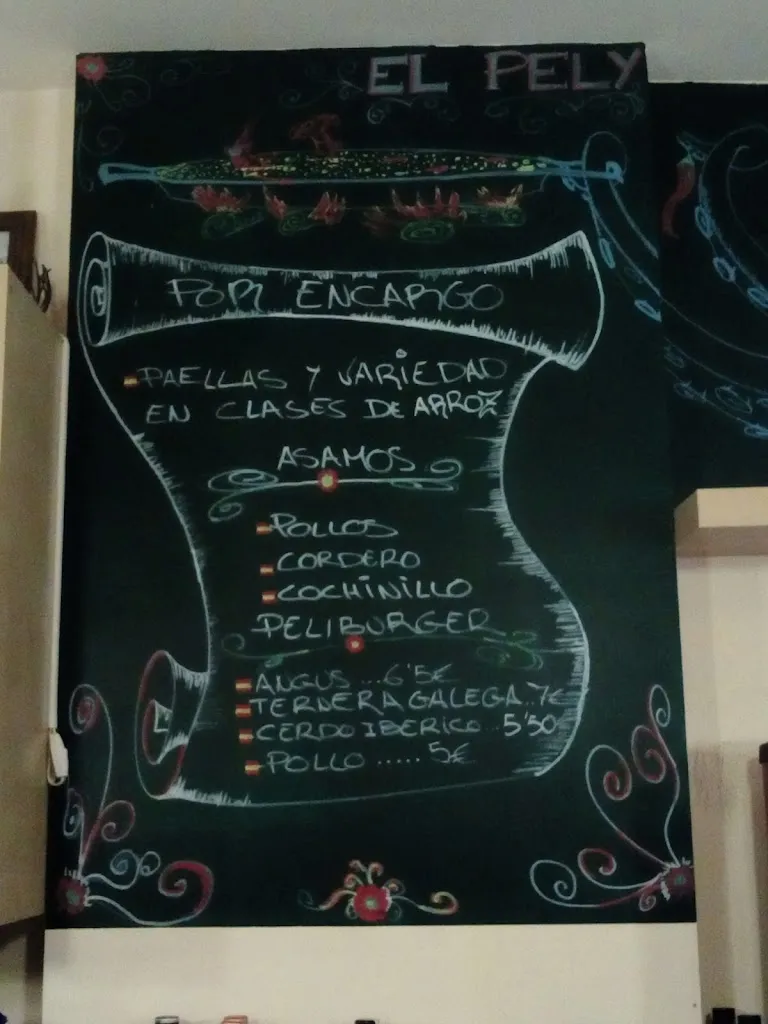 EL PELY
POR ENCARGO
PAELLAS Y VARIEDAD
EN CLASES DE ARROZ
ASAMOS
POLLOS
CORDERO
COCHINILLO
PELIBURGER
ANGUS ... 6'5€
TERNERA GALEGA .. 7€
CERDO IBERICO ... 5'50
POLLO ..... 5€